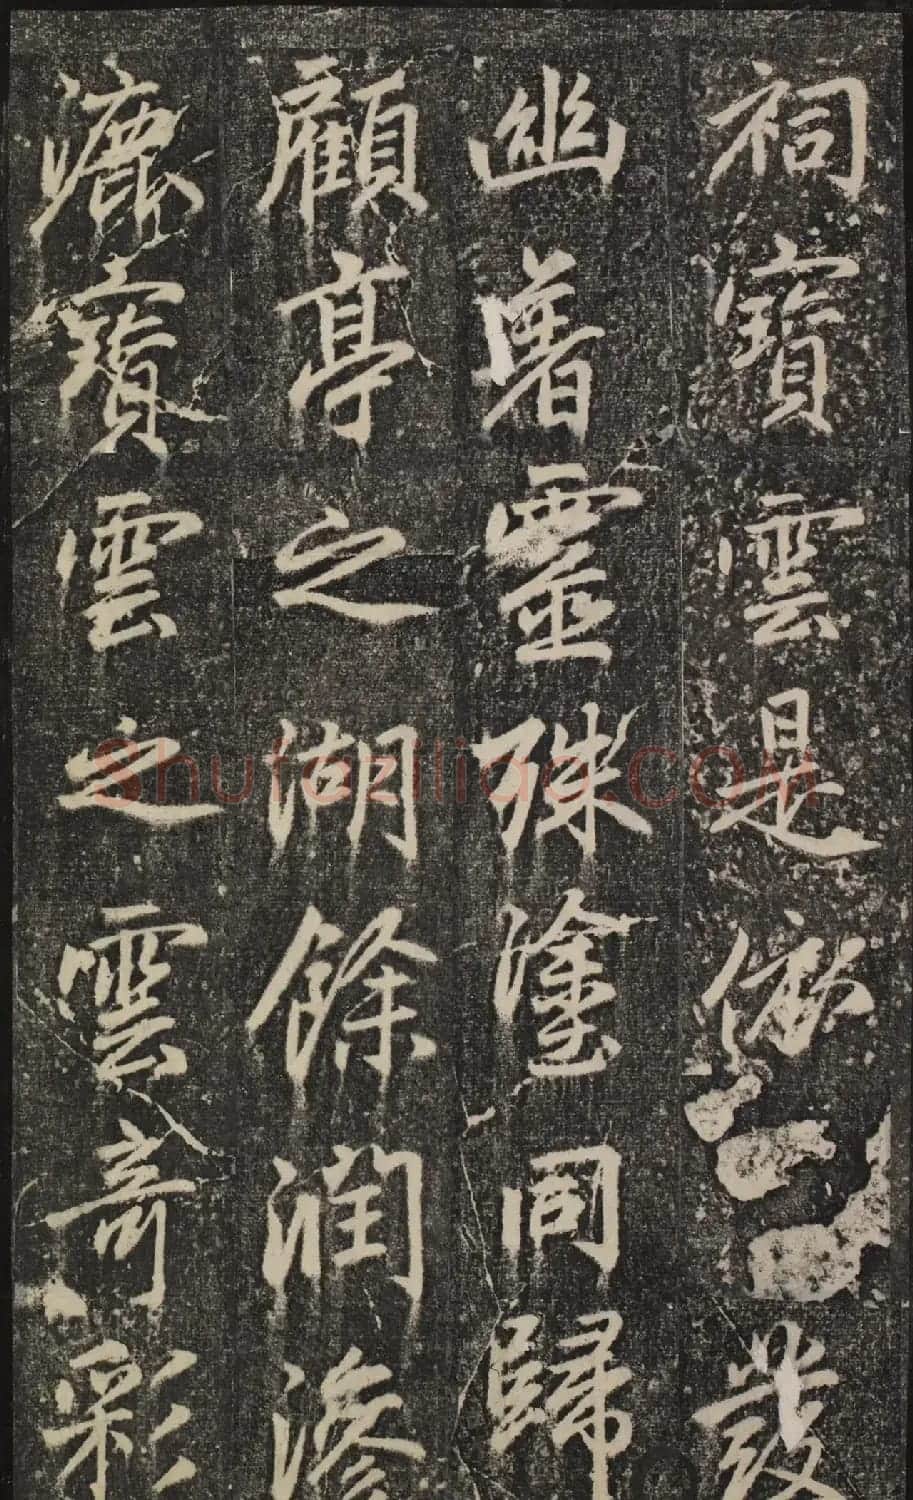 祠寶雲是依發
幽著靈殊塗同歸
顧亭之湖餘潤滲
漉寶雲之雲奇彩
Shufaziliao.COM